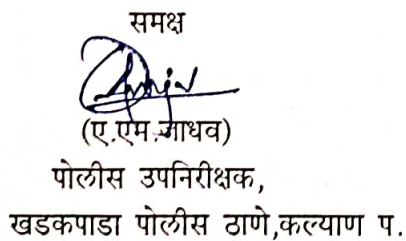 समक्ष
(ए.एम.जाधव)
पोलीस उपनिरीक्षक,
खडकपाडा पोलीस ठाणे,कल्याण प.